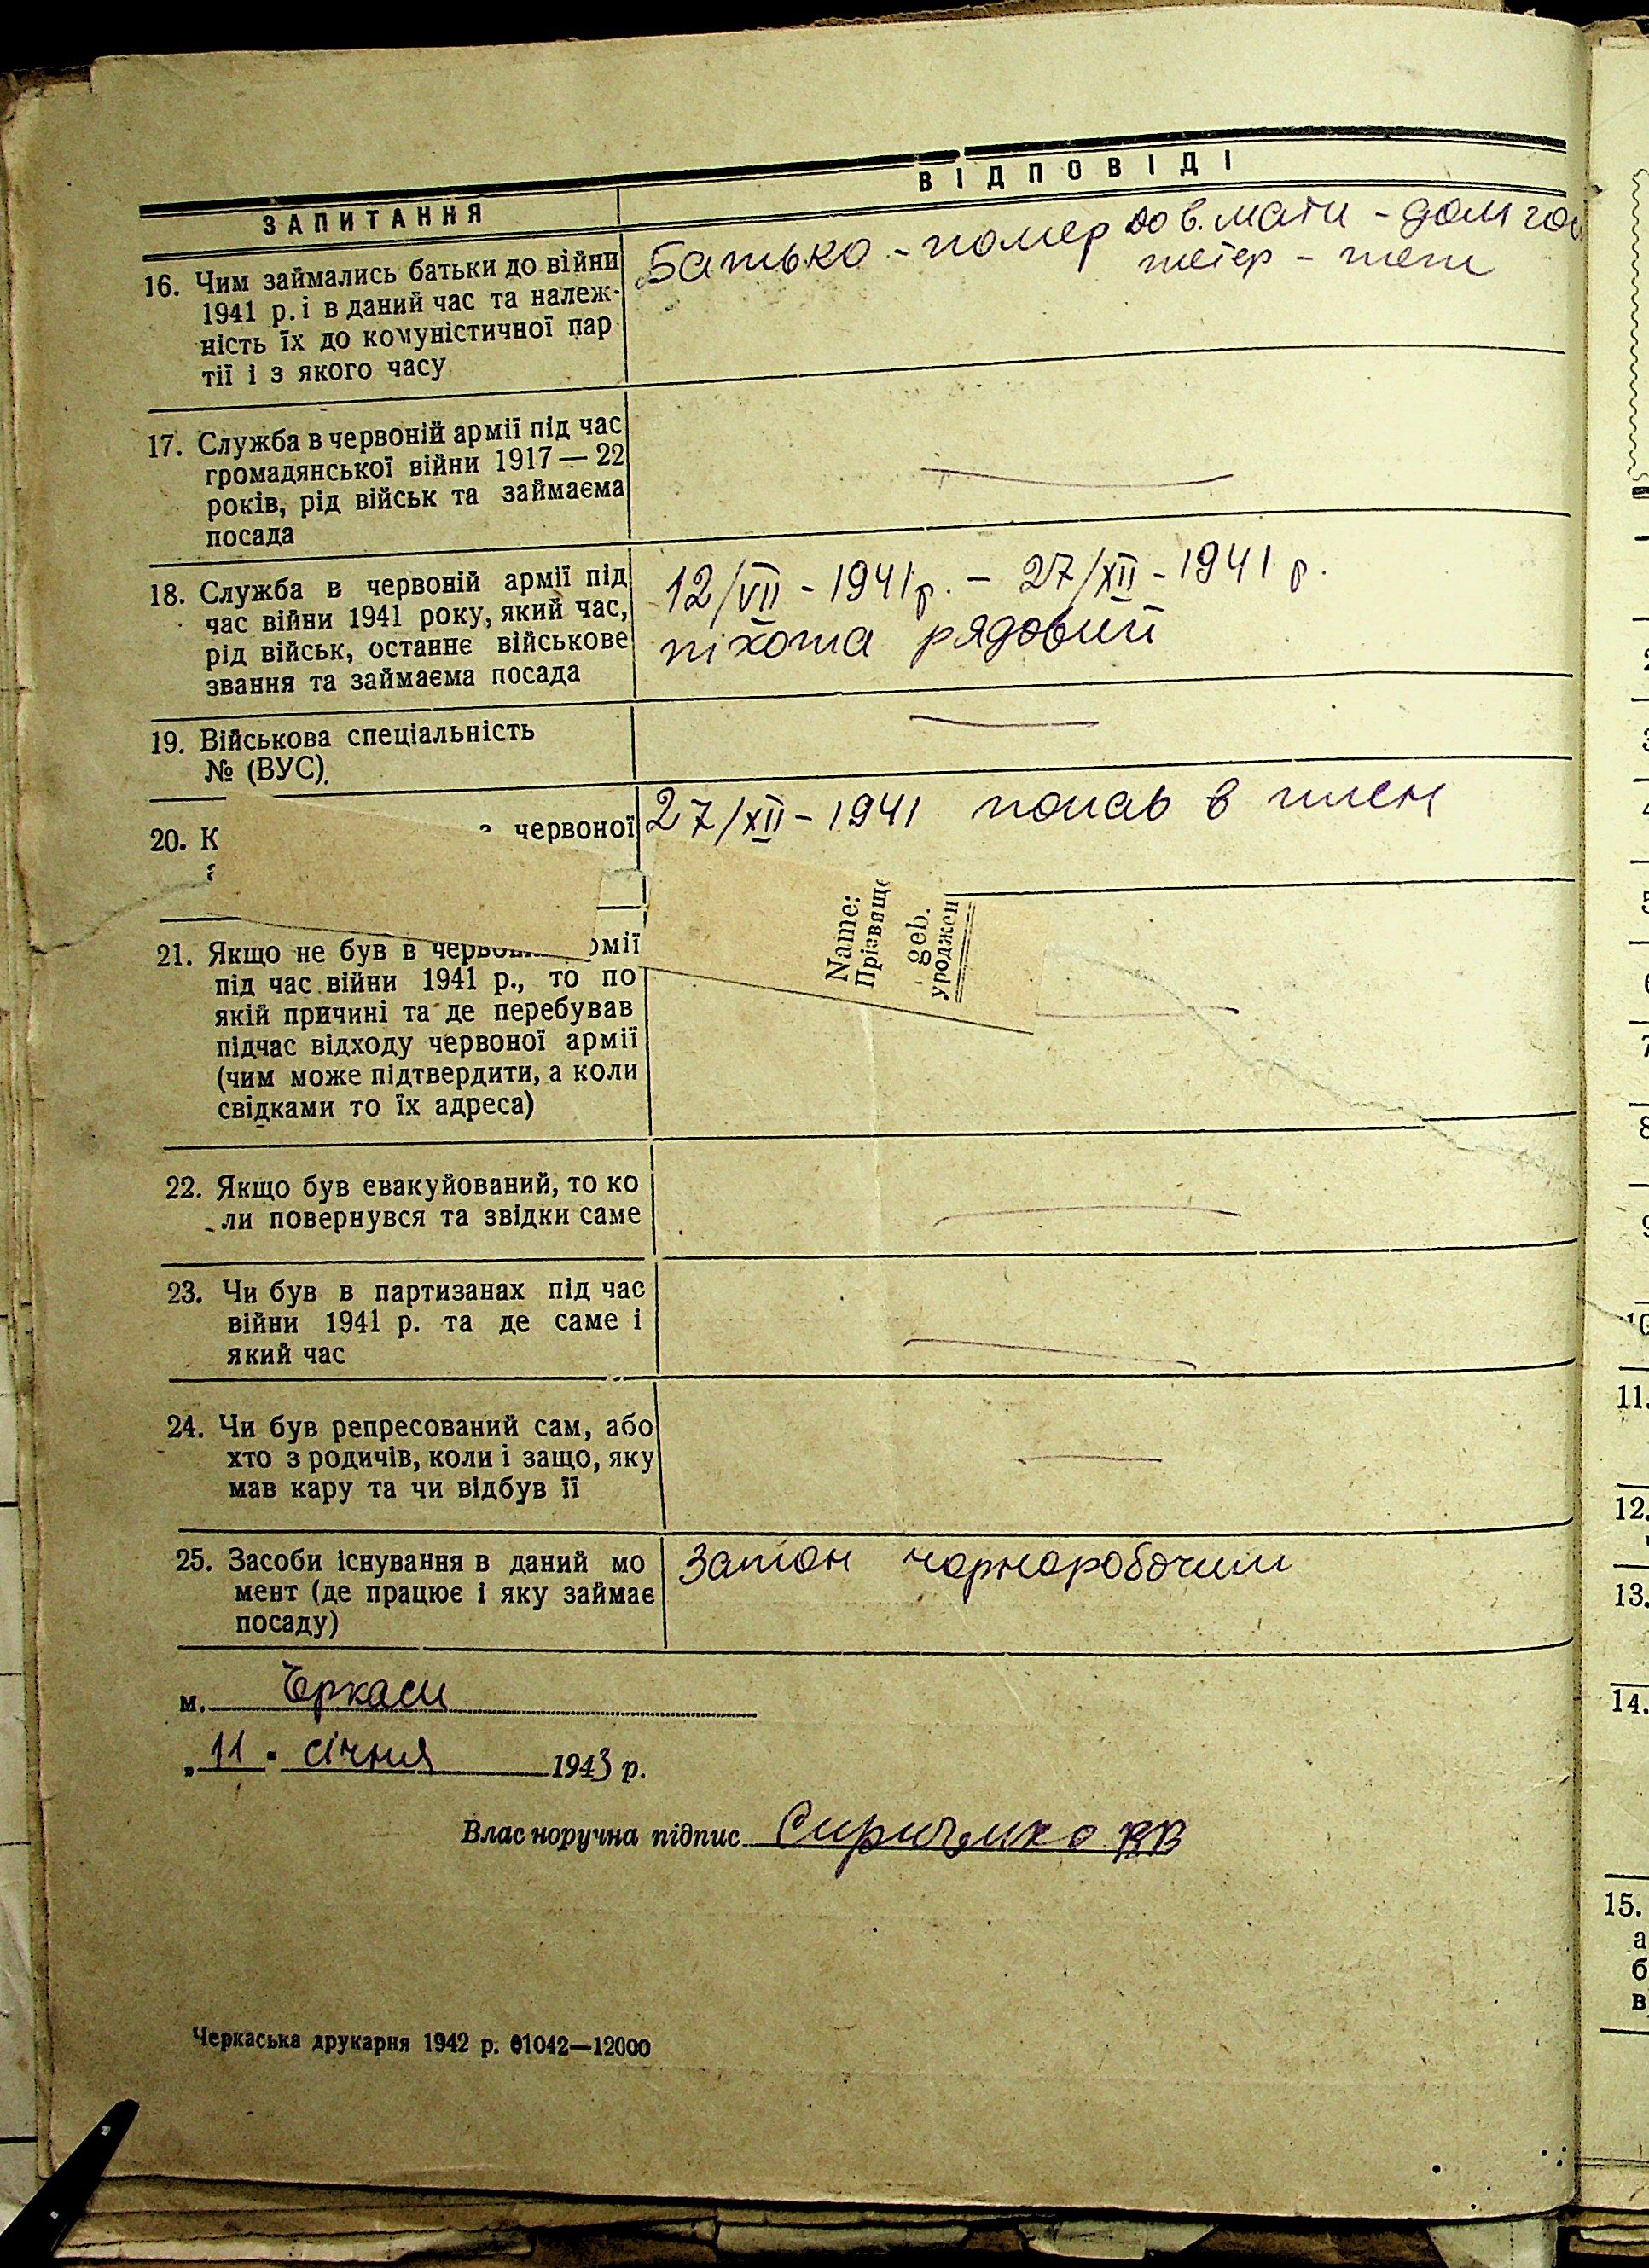 ЗАПИТАННЯ
ВІДПОВІДІ
16. Чим займались батьки до війни
1941 р. і в даний час та належ-
ність їх до комуністичної пар
тії і з якого часу
Батько - помер до в. мати - дом гос
тепер - теж
17. Служба в червоній армії під час
громадянської війни 1917 — 22
років, рід військ та займаєма
посада
18. Служба в червоній армії під
час війни 1941 року, який час,
рід військ, останнє військове
звання та займаєма посада
12/VII - 1941 р. - 27/XII - 1941 р.
піхота рядовий
19. Військова спеціальність
№ (ВУС).
20. К
червоної
27/XII - 1941 попав в плен
Name:
Прізвище
geb.
уроджен
21. Якщо не був в армії
під час війни 1941 р., то по
якій причині та де перебував
підчас відходу червоної армії
(чим може підтвердити, а коли
свідками то їх адреса)
22. Якщо був евакуйований, то ко
ли повернувся та звідки саме
23. Чи був в партизанах під час
війни 1941 р. та де саме і
який час
24. Чи був репресований сам, або
хто з родичів, коли і защо, яку
мав кару та чи відбув її
25. Засоби існування в даний мо
мент (де працює і яку займає
посаду)
Затон чорноробочим
м. Черкаси
„ 11 " січня 1943 р.
Власноручна підпис ВВ
Черкаська друкарня 1942 р. 01042—12000
11.
12.
13.
14.
15.
а
б
в